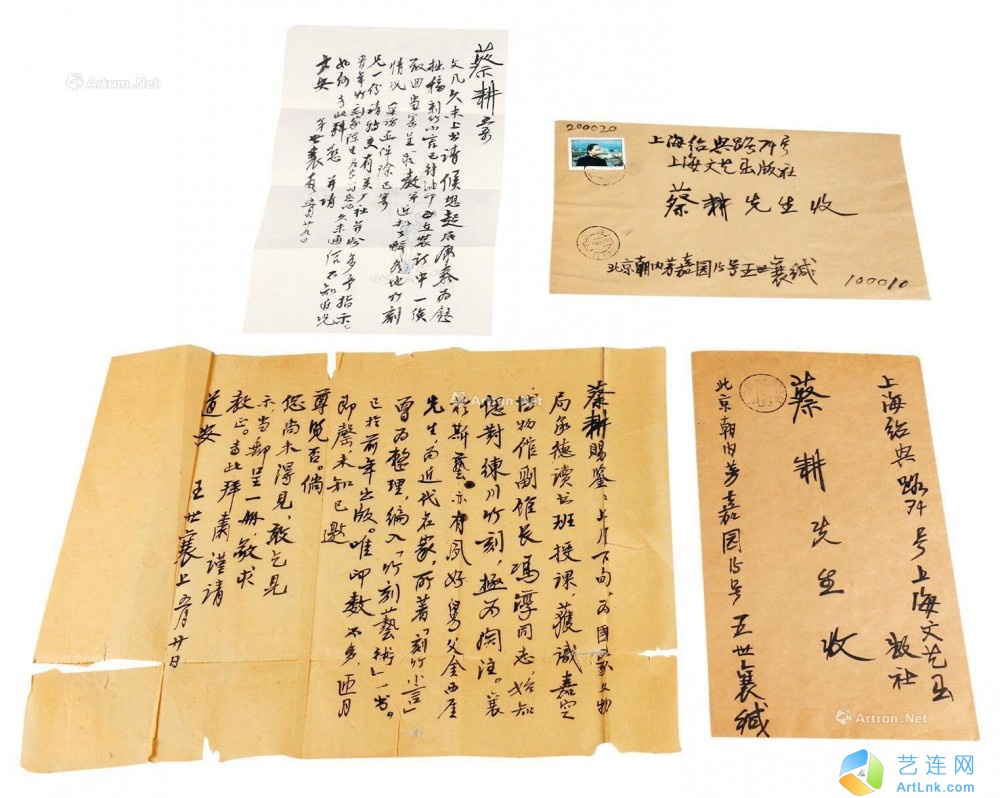 蔡耕吾兄
文几久未上书请候想起居康泰为慰
拙稿刻竹小言已付油印正在装订中一俟
取回当寄呈求教弟近拟了解各地竹刻
情况
兄一份请
如何专此拜恳 并请
文安 弟世襄
Artron.Net
200020
上海绍兴路74号
上海文艺出版社
蔡耕先生收
北京朝内芳嘉园15号王世襄缄
100010
蔡耕赐鉴:上月下旬,为国家文物
局承德读书班授课,获识嘉定
博物馆副馆长冯淳同志,始知
您对练川竹刻,极为关注。襄
于斯艺亦有夙好舅父金西厓
先生,为近代名家,所著「刻竹小言」
曾为整理,编入「竹刻艺术」一书。
已于前年出版。唯印数不多,匝月
即罄,未知已邀
尊览否。倘
您尚未得见,敬乞见
示,当邮呈一册,敬求
教正。专此拜肃谨请
道安 王世襄上 五月廿日
Artron.Net
上海绍兴路74号上海文艺出
版社
蔡耕先生收
北京朝内芳嘉园15号 王世襄缄
Artron.Net
艺连网
ArtLnk.com